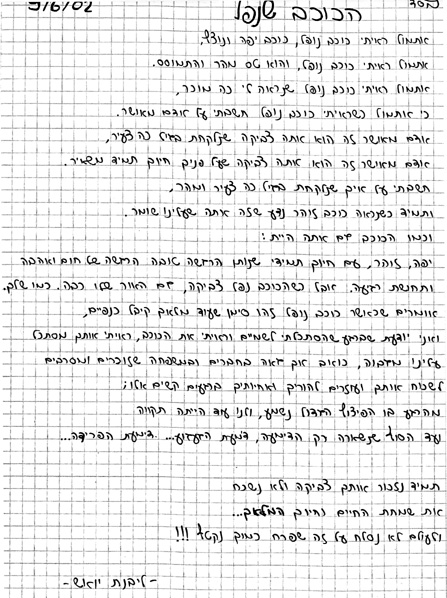 5/6/02
בס"ד
הכוכב שנפל
אתמול ראיתי כוכב נופל, כוכב יפה ונוצץ,
אתמול ראיתי כוכב נופל, והוא טס מהר והתמוסס.
אתמול ראיתי כוכב נופל שנראה לי כה מוכר,
כי אתמול כשראיתי כוכב נופל חשבתי על אדם מאושר.
אדם מאושר זה הוא אתה צביקה שנלקחת בגיל כה צעיר,
אדם מאושר זה הוא אתה צביקה שעל פניך חיוך תמיד משאיר.
חשבתי על איך שנלקחת בגיל כה צעיר ומהר,
ותמיד כשנראה כוכב זוהר נדע שזה אתה שעלינו שומר.
וכמו הכוכב שם אתה היית:
יפה, זוהר, עם חיוך תמידי שנותן הרגשה טובה הרגשה של חום ואהבה
ותחושת רוגע. אבל כשהכוכב נפל צביקה, שם האור שלו כבה. כמו שלך.
אומרים שכאשר כוכב נופל זהו סימן שעוד מלאך קיבל כנפיים,
ואני יודעת שברגע שהסתכלתי לשמיים וראיתי את הכוכב, ראיתי אותך מסתכל
עלינו מגבוה, כואב את הכאב בחברים ובמשפחה שזוכרים ומסרבים
לשכוח אותך ועוזרים להוריך ואחיותיך ברגעים הקשים אלו;
מהרגע בו הפיצוץ הגדול נשמע, ולנו עוד הייתה תקווה
עד הסוף שנשארה רק הדימעה, דמעת הגעגוע... דימעת הפרידה...
תמיד נזכור אותך צביקה ולא נשכח
את שמחת החיים וחיוך המלאך...
ולעולם לא נסלח על זה שפרח כמוך נקטף!!!
-ליבנת יואש-